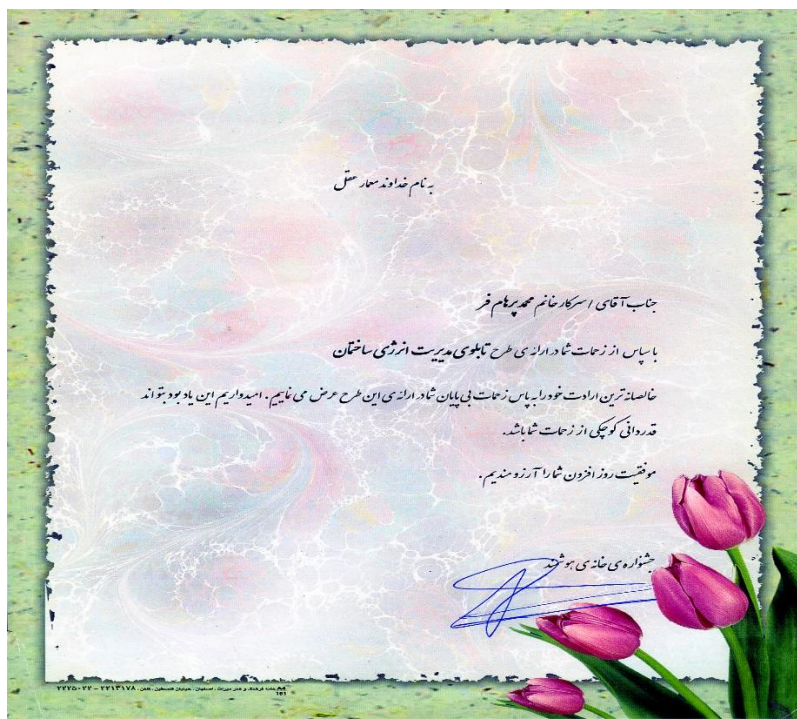 به نام خداوند معمار عقل
جناب آقای / سرکار خانم محمد پرهام فر
با سپاس از زحمات شما در ارائه ی طرح تابلوی مدیریت انرژی ساختمان
خالصانه ترین ارادت خود را به پاس زحمات بی پایان شما در ارائه ی این طرح عرض می نماییم . امیدواریم این یادبود بتواند
قدردانی کوچکی از زحمات شما باشد.
موفقیت روز افزون شما را آرزومندیم .
جشنواره ی خانه ی هوشمند
خانه فرهنگ و هنر میراث . اصفهان . خیابان فلسطین . تلفن : ۲۲۱۳۱۷۸ – ۲۲۲۵۰۲۲